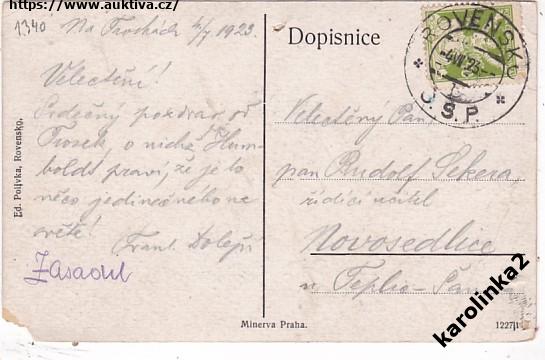 https://www.auktiva.cz/
1340
Na Troskách 4/7 1923.
Velectění!
Srdečný pozdrav od
Trosek, o nichž Hum-
boldt praví, že je to
něco jedinečného na
světě!
Frant. Dolejší
Zasadil
Ed. Polívka, Rovensko.
Dopisnice
ROVENSKO
4.VII.23
Č.S.P.
Velectěný Pan,
pan Rudolf Sekera
řídící učitel
Novosedlice
u Teplic-
Minerva Praha.
1227/1
karolinka2